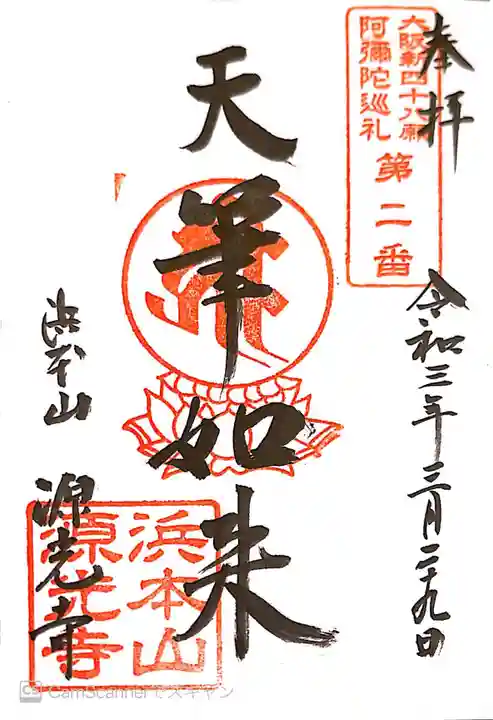 奉拝
大阪新四十八願
阿彌陀巡礼
第二番
令和三年三月二十九日
天筆如来
浜本山
源光寺
浜本山
源光寺
CS CamScannerでスキャン